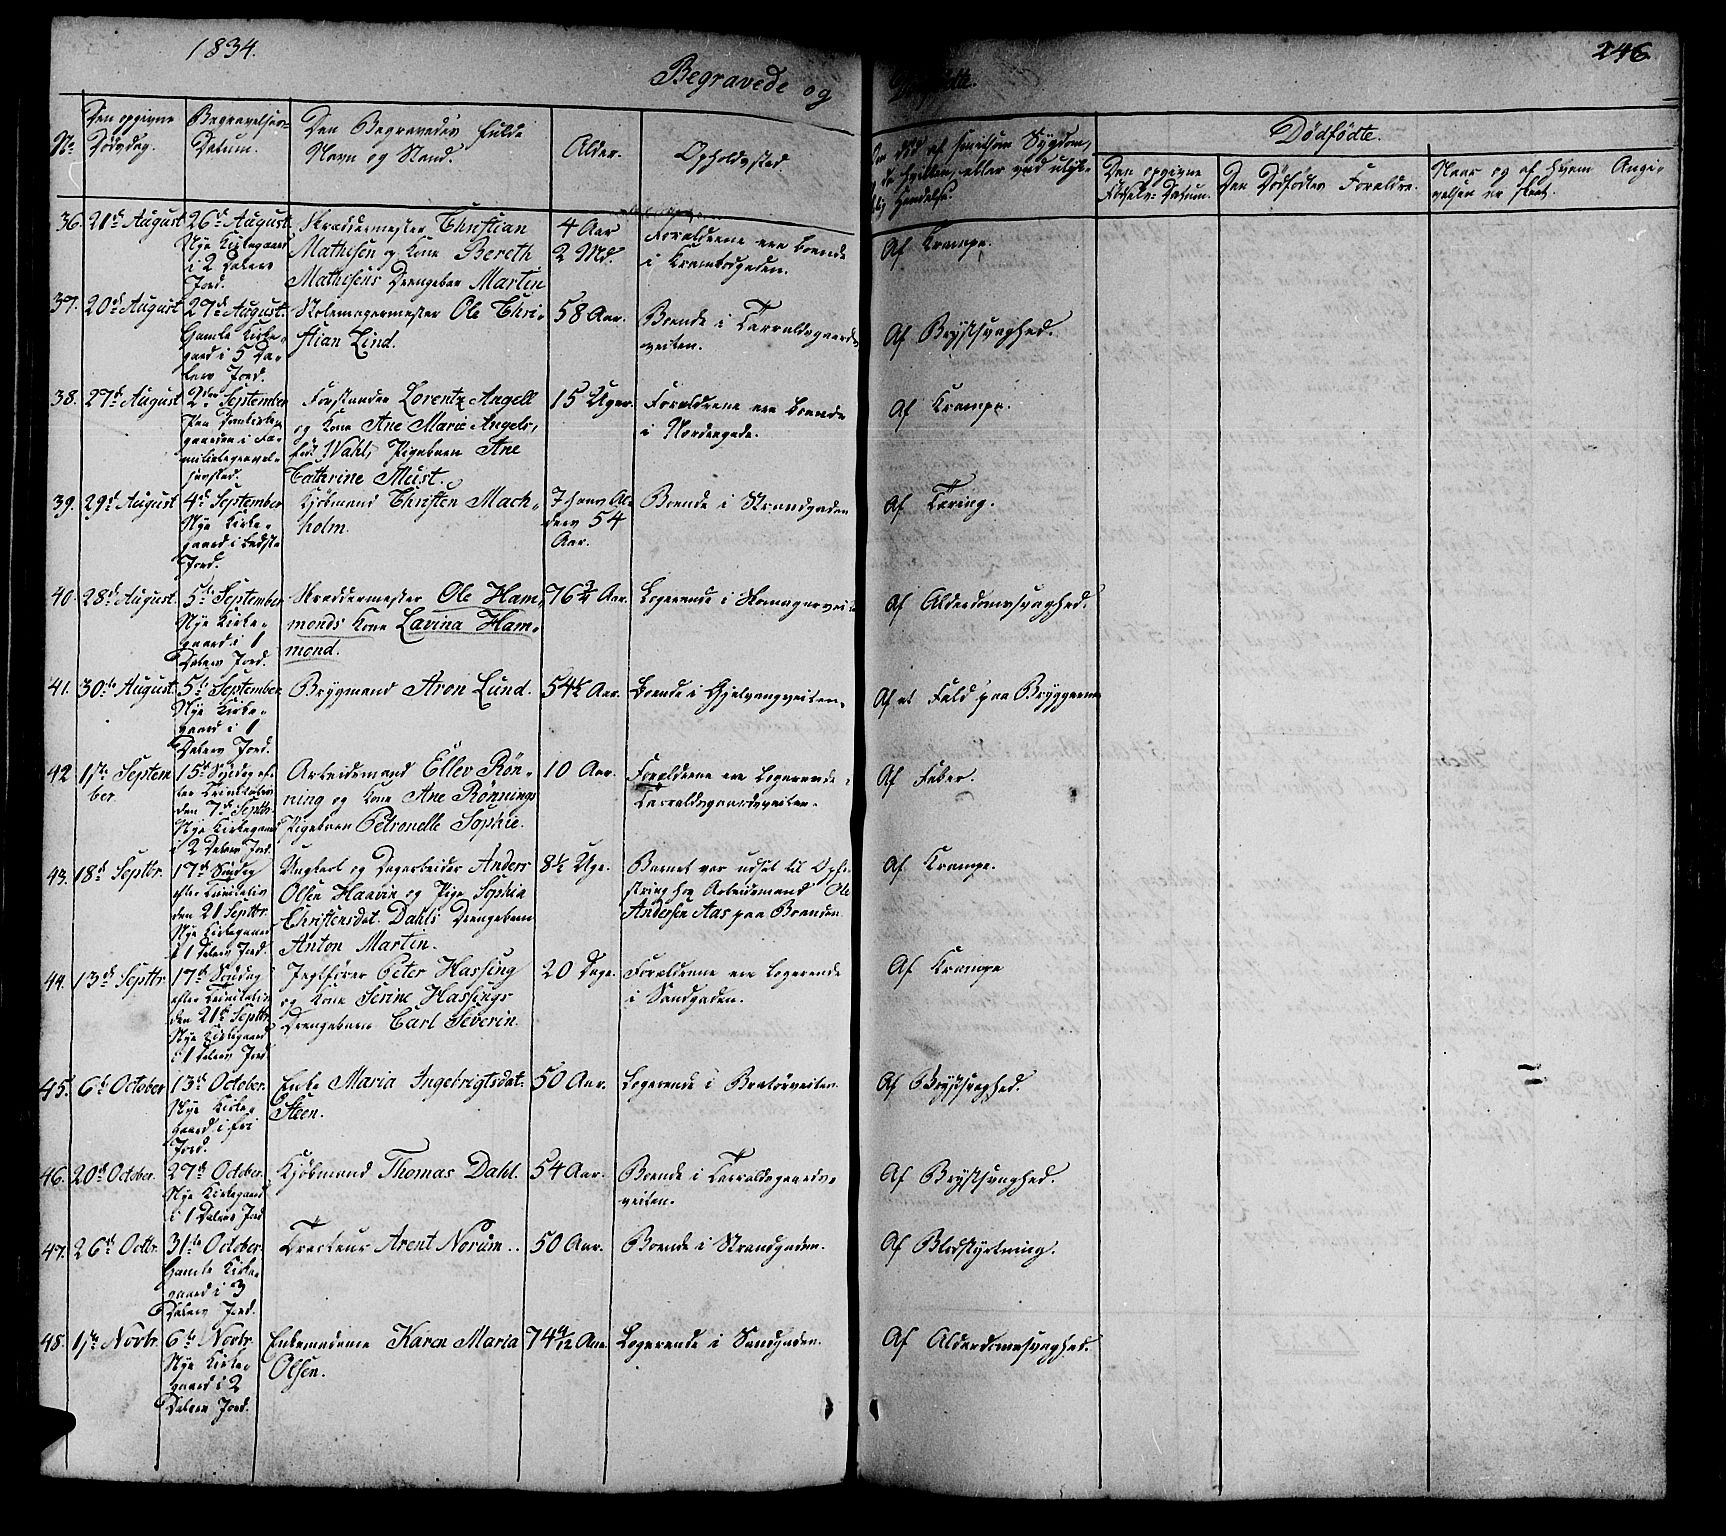 1834.
246
Begravede og
Dødfødte.
No
Den opgivne
Dødsdag.
Begravelses-
Datum.
Den Begravedes fulde
Navn og Stand.
Alder.
Opholdssted.
Død af smitsom Sygdom,
eller ved ulyk-
Hændelse.
Dødfødte.
Den opgivne
Fødsels-Datum.
Den Dødfødtes Forældre.
Naar og af hvem Angi-
velsen er skeet.
36. 21de August
26de August
Nye Kirkegaard
i 2 Dalers
Jord.
Skræddermester Christian
Mathisen og Kone Bereth
Mathisens Drengebarn Martin
4 Aar
2 Md.
Forældrene ere boende
i Krambodgaden.
Af Krampe.
37. 20de August
27de August.
Gamle Kirke-
gaard i 5 Da-
lers Jord.
Stolemagermester Ole Chri-
stian Lind.
58 Aar.
Boende i Tarraldsgaards
veiten.
Af Brystsvaghed.
38. 27de August
2den September
Paa Domkirke-
gaarden i Fa-
miliebegravel-
sessted.
Forstander Lorentz Angell
og Kone Ane Marie Angels,
født Wahl, Pigebarn Ane
Cathrine Must.
15 Uger.
Forældrene ere boende
i Nordregade.
Af Krampe.
39. 29de August
4de September
Nye Kirke-
gaard i bedste
Jord.
Kjøbmand Christen Mach-
holm.
I hans Al-
ders 54
Aar.
Boende i Strandgaden
Af Tæring.
40. 28de August
5te September
Nye Kirke-
gaard i 1
Dalers Jord.
Skræddermester Ole Ham-
monds Kone Lavina Ham-
mond.
76¾ Aar.
Logerende i Skomagerveit
Af Alderdomssvaghed.
41. 30te August.
5te September
Nye Kirke-
gaard i 1
Dalers Jord.
Brygmand Aron Lund.
54½ Aar.
Boende i Gjelvangveiten.
Af et Fald paa Bryggerne
42 1ste Septem
ber.
15de Søndag ef-
ter Trinitatis
den 7de Septbr.
Nye Kirkegaard
i 2 Dalers Jord.
Arbeidsmand Ellev Røn-
ning og Kone Ane Rønnings
Pigebarn Petronelle Sophie.
10 Aar.
Forældrene ere Logerende
Tarraldsgaardsveiten.
Af Feber.
43. 18de Septbr.
17de Søndag
efter Trinitatis
den 21 Septbr.
Nye Kirkegaard
i 1 Dalers Jord.
Ungkarl og Dagarbeider Anders
Olsen Haavin og Pige Sophia
Christensdat. Dahls Drengebarn
Anton Martin.
8½ Uge.
Barnet var udsat til Opfo-
string hos Arbeidsmand Ole
Andersen Aas paa Baranden
Af Krampe.
44. 13de Septbr.
17de Søndag
efter Trinitatis
den 21de Septbr.
Nye Kirkegaard
i 1 Dalers Jord.
Jegtfører Peter Hassing
og Kone Serine Hassings
Drengebarn Carl Severin.
20 Dage.
Forældrene ere Logerende
i Sandgaden.
Af Krampe
45. 6te October
13de October.
Nye Kirke-
gaard i fri
Jord.
Enke Maria Ingebrigtsdat.
Steen.
50 Aar.
Logerende i Bratørveiten.
Af Brystsvaghed.
46. 20de October.
27de October.
Nye Kirkegaard
i 1 Dalers Jord
Kjøbmand Thomas Dahl.
54 Aar.
Boende i Tarraldsgaards-
veiten.
Af Brystsvaghed.
47. 26de Octbr.
31te October.
Gamle Kirke-
gaard i 3
Dalers Jord.
Tracteur Arent Norum.
50 Aar.
Boende i Strandgaden.
Af Blodstyrtning.
48. 1ste Novbr.
6te Novbr.
Nye Kirke-
gaard i 2
Dalers Jord.
Enkemadame Karen Maria
Olsen.
74 4/12 Aar.
Logerende i Sandgaden.
Af Alderdomssvaghed.